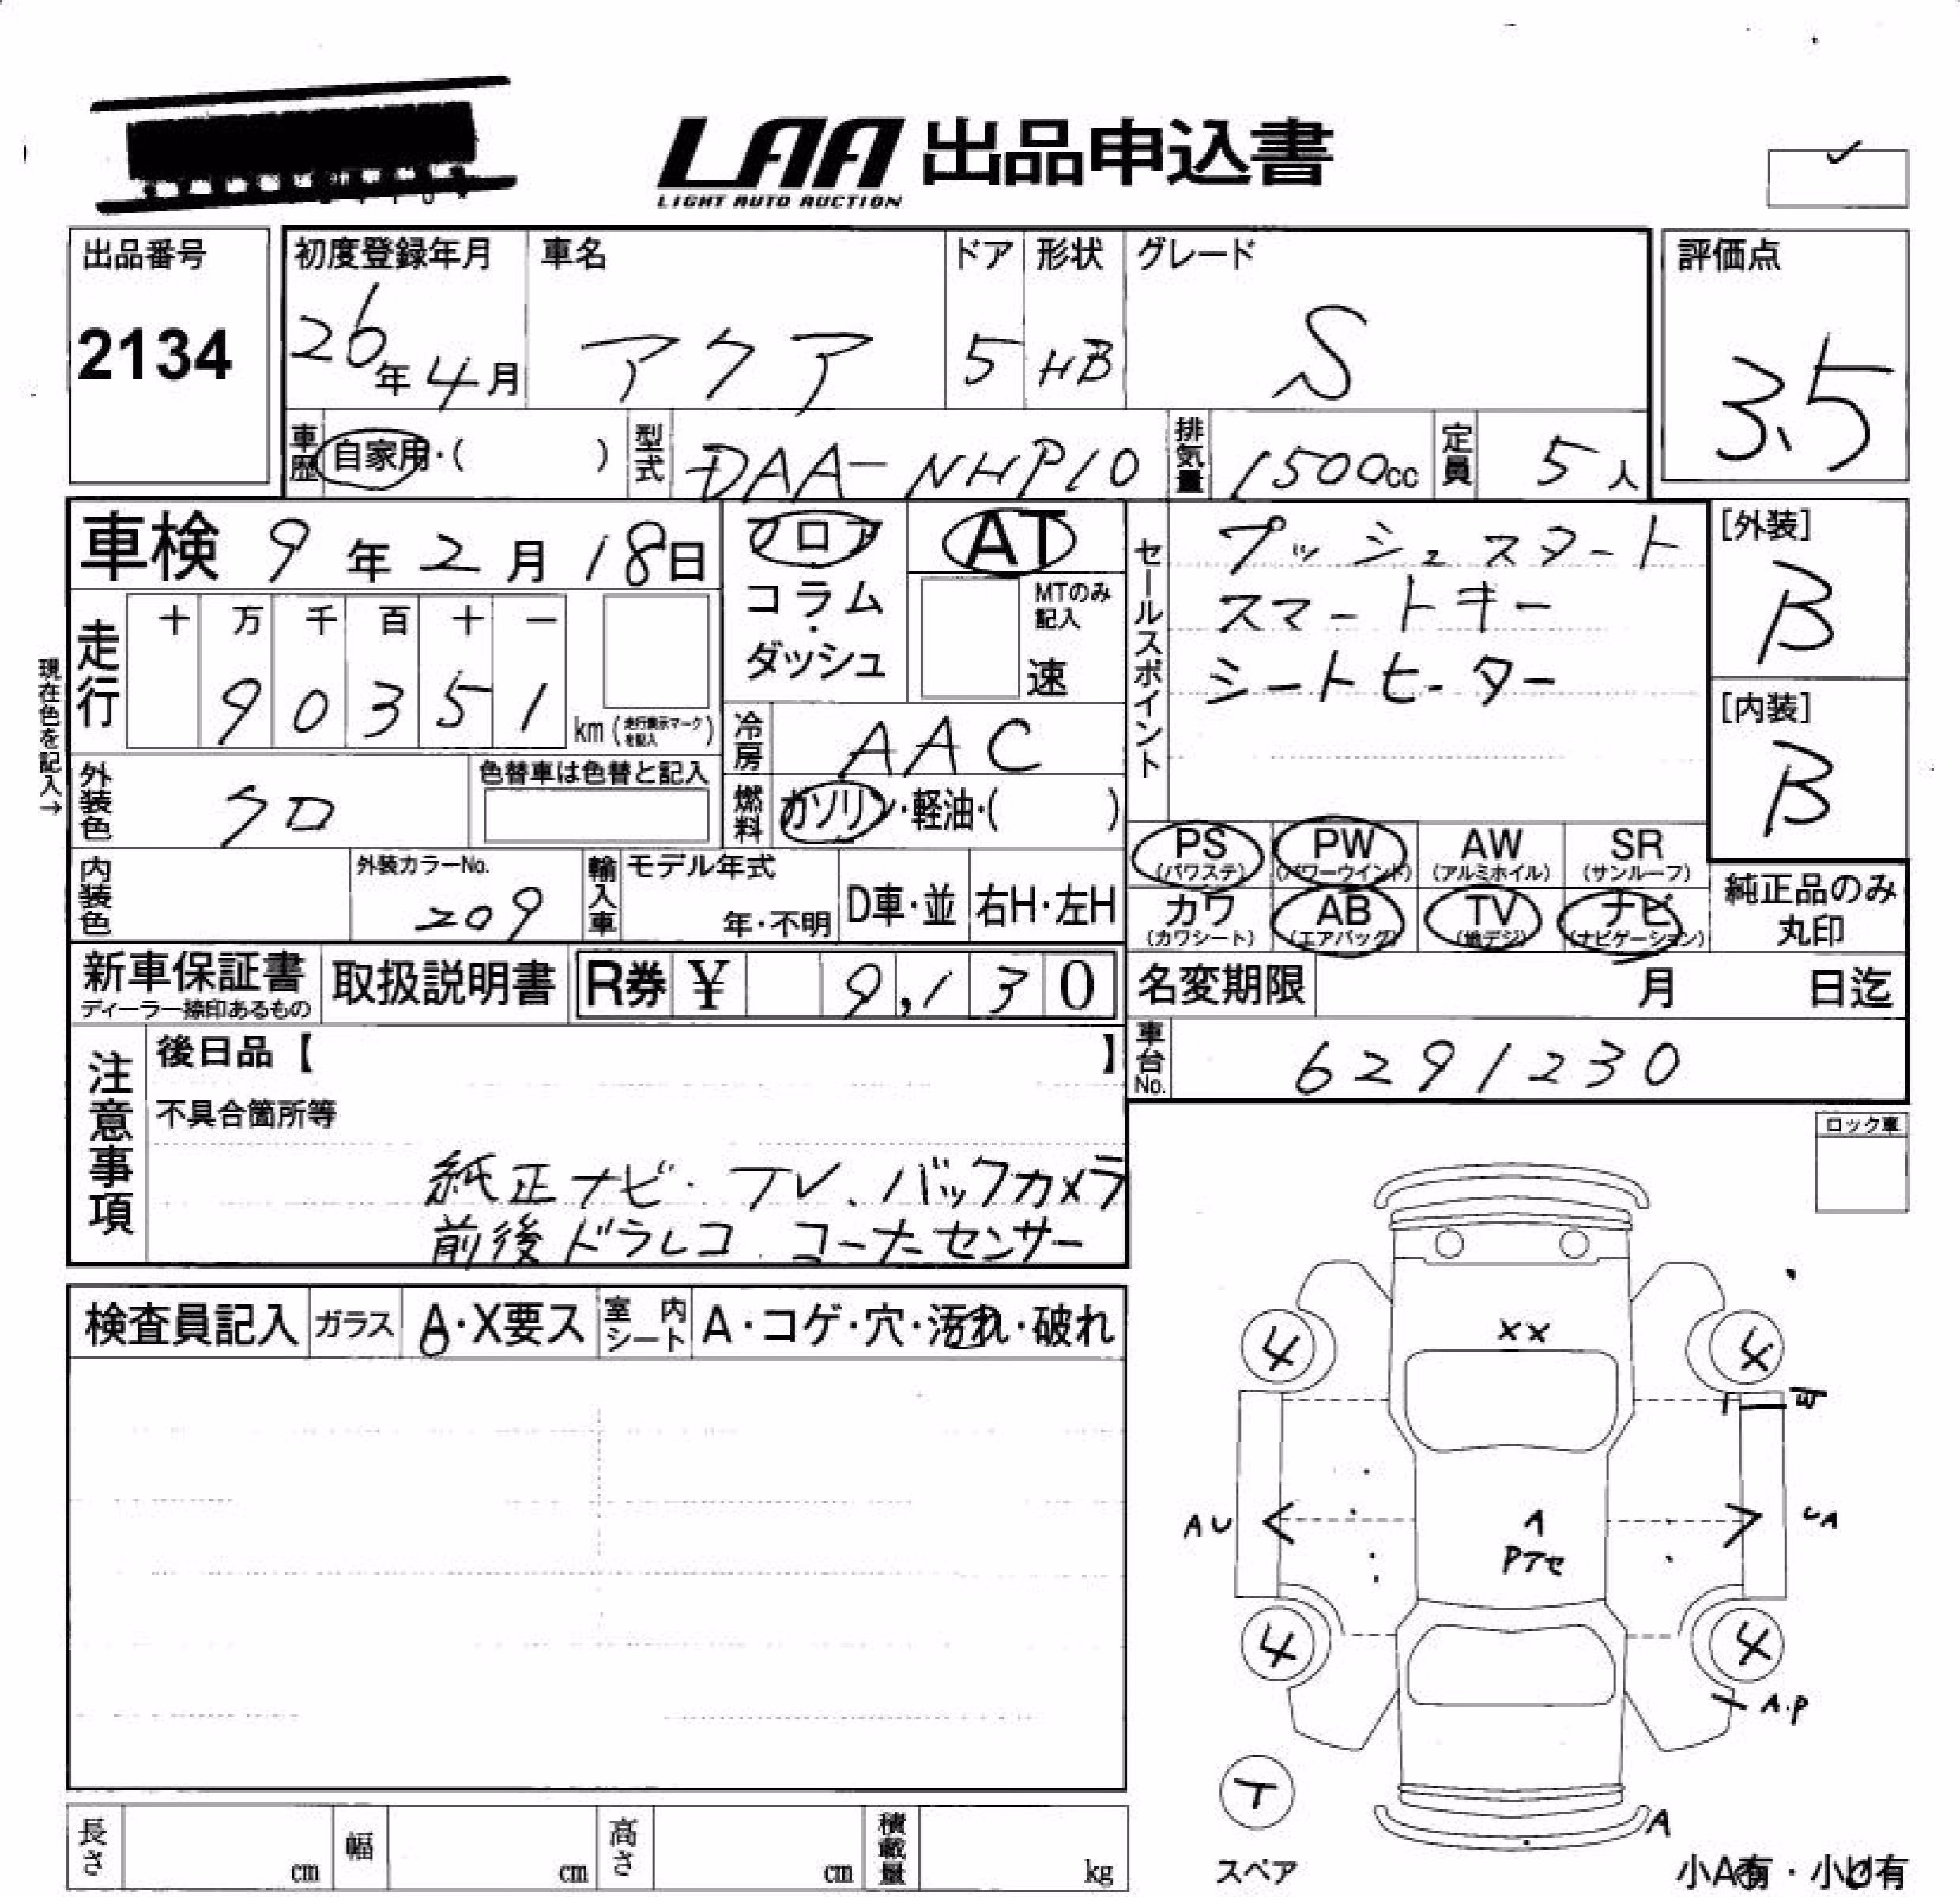 LAA 出品申込書
LIGHT AUTO AUCTION
出品番号
2134
初度登録年月
26年4月
車名
アクア
ドア
5
形状
HB
グレード
S
評価点
3.5
車歴
自家用・( )
型式
DAA-NHP10
排気量
1500cc
定員
5人
車検 9年2月18日
フロア
コラム
・
ダッシュ
AT
MTのみ
記入
速
セールスポイント
プッシュスタート
スマートキー
シートヒーター
[外装]
B
[内装]
B
現在色を記入→
走行
十 万 千 百 十 一
9 0 3 5 1
km (走行表示マークを記入)
冷房
AAC
外装色
クロ
色替車は色替と記入
燃料
ガソリン・軽油・( )
PS
(パワステ)
PW
(パワーウインド)
AW
(アルミホイル)
SR
(サンルーフ)
カワ
(カワシート)
AB
(エアバッグ)
TV
(地デジ)
ナビ
(ナビゲーション)
純正品のみ
丸印
内装色
外装カラーNo.
209
輸入車
モデル年式
年・不明
D車・並
右H・左H
新車保証書
ディーラー捺印あるもの
取扱説明書
R券 ¥ 9,130
名変期限 月 日迄
車台No.
6291230
注意事項
後日品【 】
不具合箇所等
純正ナビ・TV、バックカメラ
前後ドラレコ、コーナーセンサー
ロック車
検査員記入
ガラス
A・X要ス
室内シート
A・コゲ・穴・汚れ・破れ
XX
4
4
W
AU
UA
A
Pアセ
4
4
A・P
T
スペア
A
小A有・小U有
長さ
cm
幅
cm
高さ
cm
積載量
kg